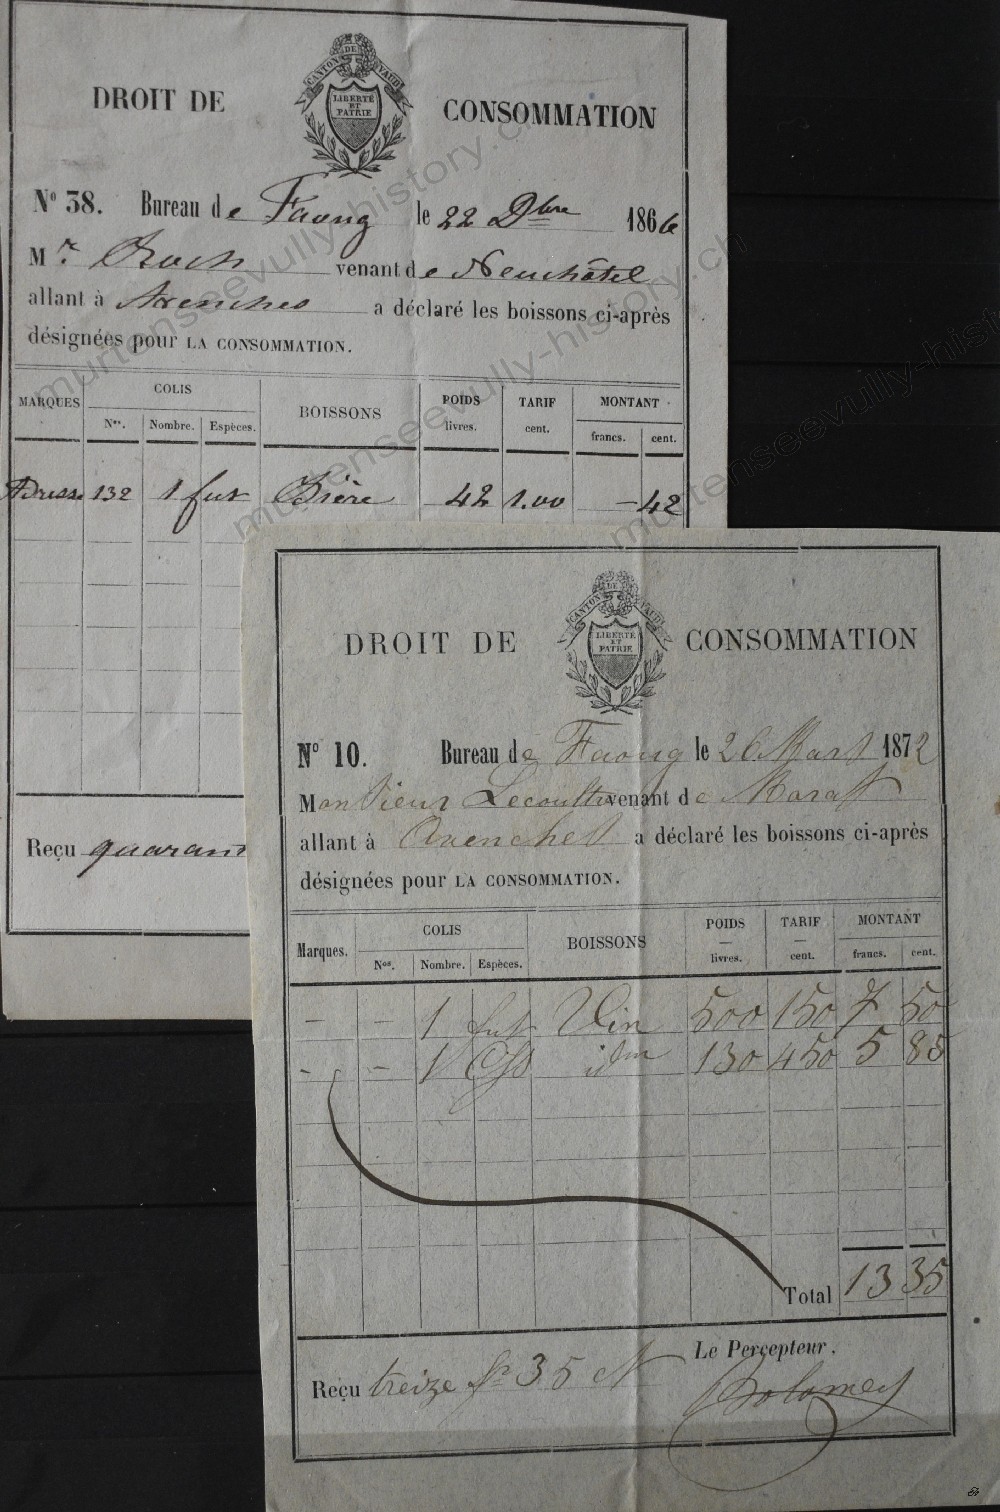 CANTON DE VAUD
LIBERTÉ
ET
PATRIE
DROIT DE CONSOMMATION
No 38. Bureau de Faoug le 22 Dbre 1866
Mr. venant de Neuchâtel
allant à Avenches a déclaré les boissons ci-après
désignées pour LA CONSOMMATION.
MARQUES COLIS BOISSONS POIDS TARIF MONTANT
Nos. Nombre. Espèces. livres. cent. francs. cent.
Adresse 132 1 fut Bière 42 1.00 – 42
Reçu quarant
CANTON DE VAUD
LIBERTÉ
ET
PATRIE
DROIT DE CONSOMMATION
No 10. Bureau de Faoug le 26 Mars 1872
Monsieur Lecoultre venant de Morat
allant à Avenches a déclaré les boissons ci-après
désignées pour LA CONSOMMATION.
Marques. COLIS BOISSONS POIDS TARIF MONTANT
Nos. Nombre. Espèces. livres. cent. francs. cent.
– – 1 fut Vin 500 150 7 50
– – 1 idm 130 450 5 85
Total 13 35
Le Percepteur.
Reçu treize fr 35 ct
murtenseevully-history.ch
murtenseevully-history.ch
murtenseevully-history.ch